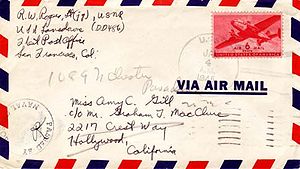 R.W. Rogers, Lt(jg), USNR
U.S.S. Lansdowne (DD486)
Fleet Post Office
San Francisco, Cal.
U.S.
AIR MAIL
6
UNITED STATES OF AMERICA
VIA AIR MAIL
Miss Amy C. Gill
c/o Mr. Graham J. MacClure
2217 Crest Way
Hollywood,
California
PASSED BY
NAVAL